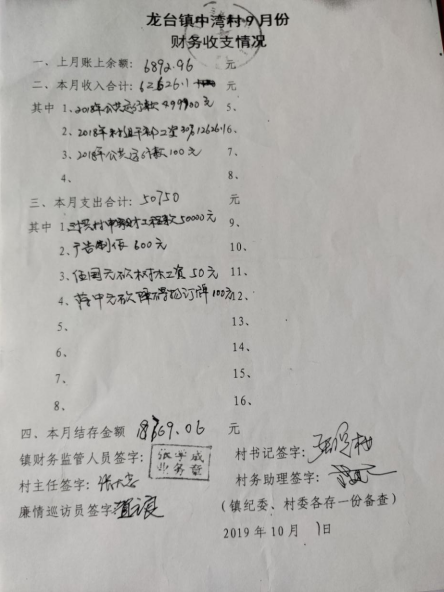 龙台镇中湾村9月份
财务收支情况
一、上月账上余额：6892.96 元
二、本月收入合计：62626.1 元
其中 1、2018年公共运行款49900元 5、
2、2018年村组干部工资30%12626.1 6、
3、2018年公共运行款100元 7、
4、 8、
三、本月支出合计：50750 元
其中 1、工程款50000元 9、
2、广告制作600元 10、
3、伍国元砍树木工资50元 11、
4、100元 12、
5、 13、
6、 14、
7、 15、
8、 16、
四、本月结存金额 18769.06 元
镇财务监管人员签字： 村书记签字：
业务章
村主任签字： 村务助理签字：
廉情巡访员签字 （镇纪委、村委各存一份备查）
2019年10月1日